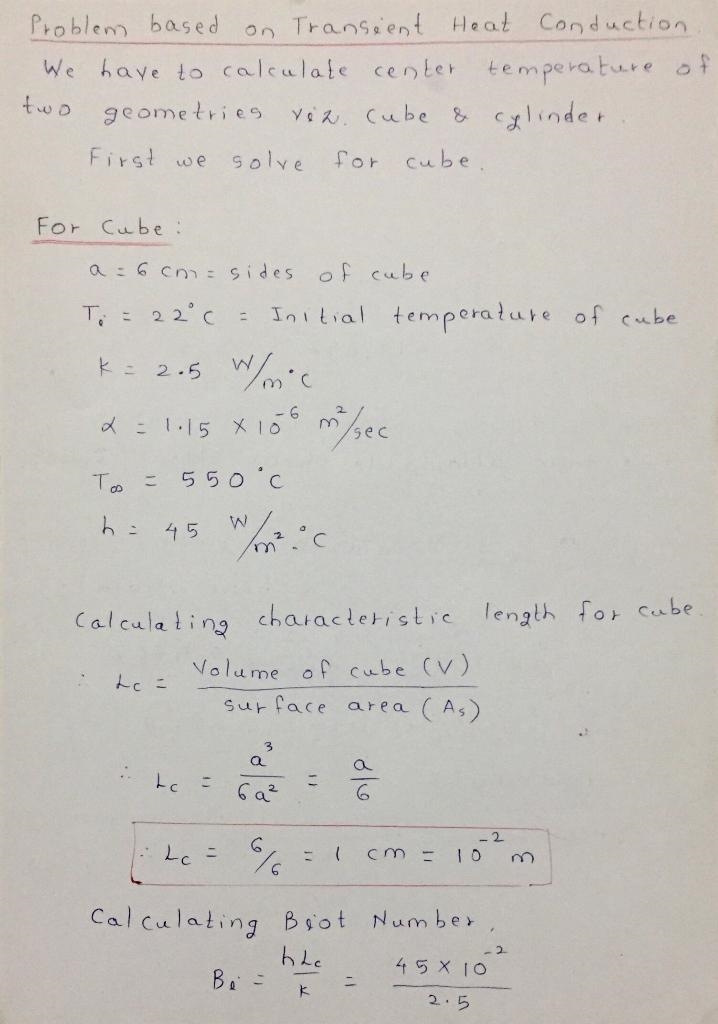 Problem based on Transient Heat Conduction.
We have to calculate center temperature of
two geometries viz. cube & cylinder.
First we solve for cube.
For Cube:
a = 6 cm = sides of cube
Ti = 22°C = Initial temperature of cube
k = 2.5 W/m°C
α = 1.15 × 10⁻⁶ m²/sec
T∞ = 550°C
h = 45 W/m².°C
Calculating characteristic length for cube.
∴ Lc = Volume of cube (V) / surface area (As)
∴ Lc = a³/6a² = a/6
∴ Lc = 6/6 = 1 cm = 10⁻² m
Calculating Biot Number,
Bi = hLc/k = 45 × 10⁻²/2.5